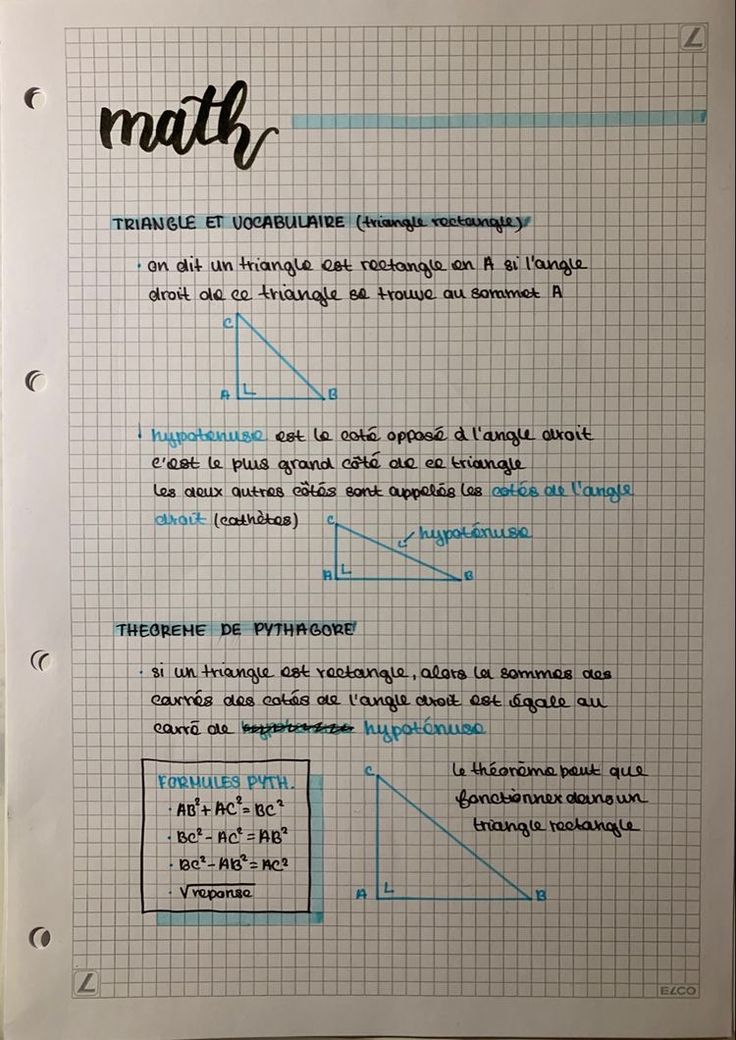 math
TRIANGLE ET VOCABULAIRE (triangle rectangle)
· on dit un triangle est rectangle en A si l'angle
droit de ce triangle se trouve au sommet A
C
A B
hypotenuse est le coté opposé à l'angle droit
c'est le plus grand côté de ce triangle
les deux autres côtés sont appelés les cotés de l'angle
droit (cathètes)
C
hypoténuse
A B
THEOREME DE PYTHAGORE
· si un triangle est rectangle, alors la sommes des
carrés des cotés de l'angle droit est égale au
carré de hypoténuse
FORMULES PYTH.
· AB²+ AC²= BC²
· BC²- AC²= AB²
· BC²- AB²= AC²
· √reponse
C
A B
le théorème peut que
fonctionner dans un
triangle rectangle
ELCO